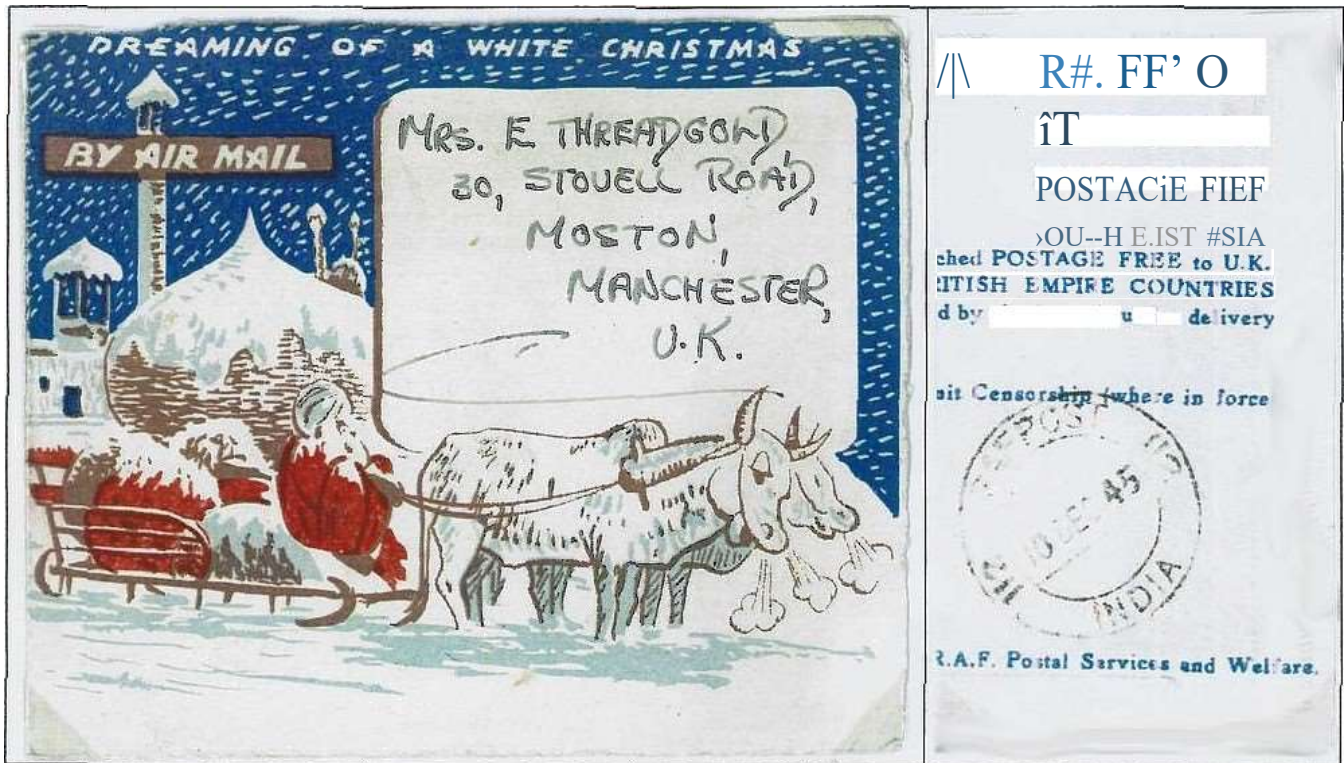 DREAMING OF A WHITE CHRISTMAS
BY AIR MAIL
MRS. E THREADGOLD,
30, STOVELL ROAD,
MOSTON,
MANCHESTER,
U.K.
R#. FF’ O
îT
POSTACiE FIEF
›OU--H E.IST #SIA
ched POSTAGE FREE to U.K.
RITISH EMPIRE COUNTRIES
d by u delivery
mit Censorship (where in force
10 DEC 45
INDIA
R.A.F. Postal Services and Welfare.